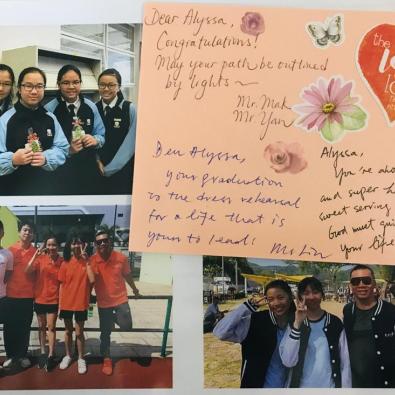 Dear Alyssa,
Congratulations!
May your path be outlined
by lights ~
Mr. Mak
Mr. Yan
the
Dear Alyssa,
your graduation
is the dress rehearsal
for a life that is
yours to lead!
Alyssa,
You're
and super
sweet serving
God must
your